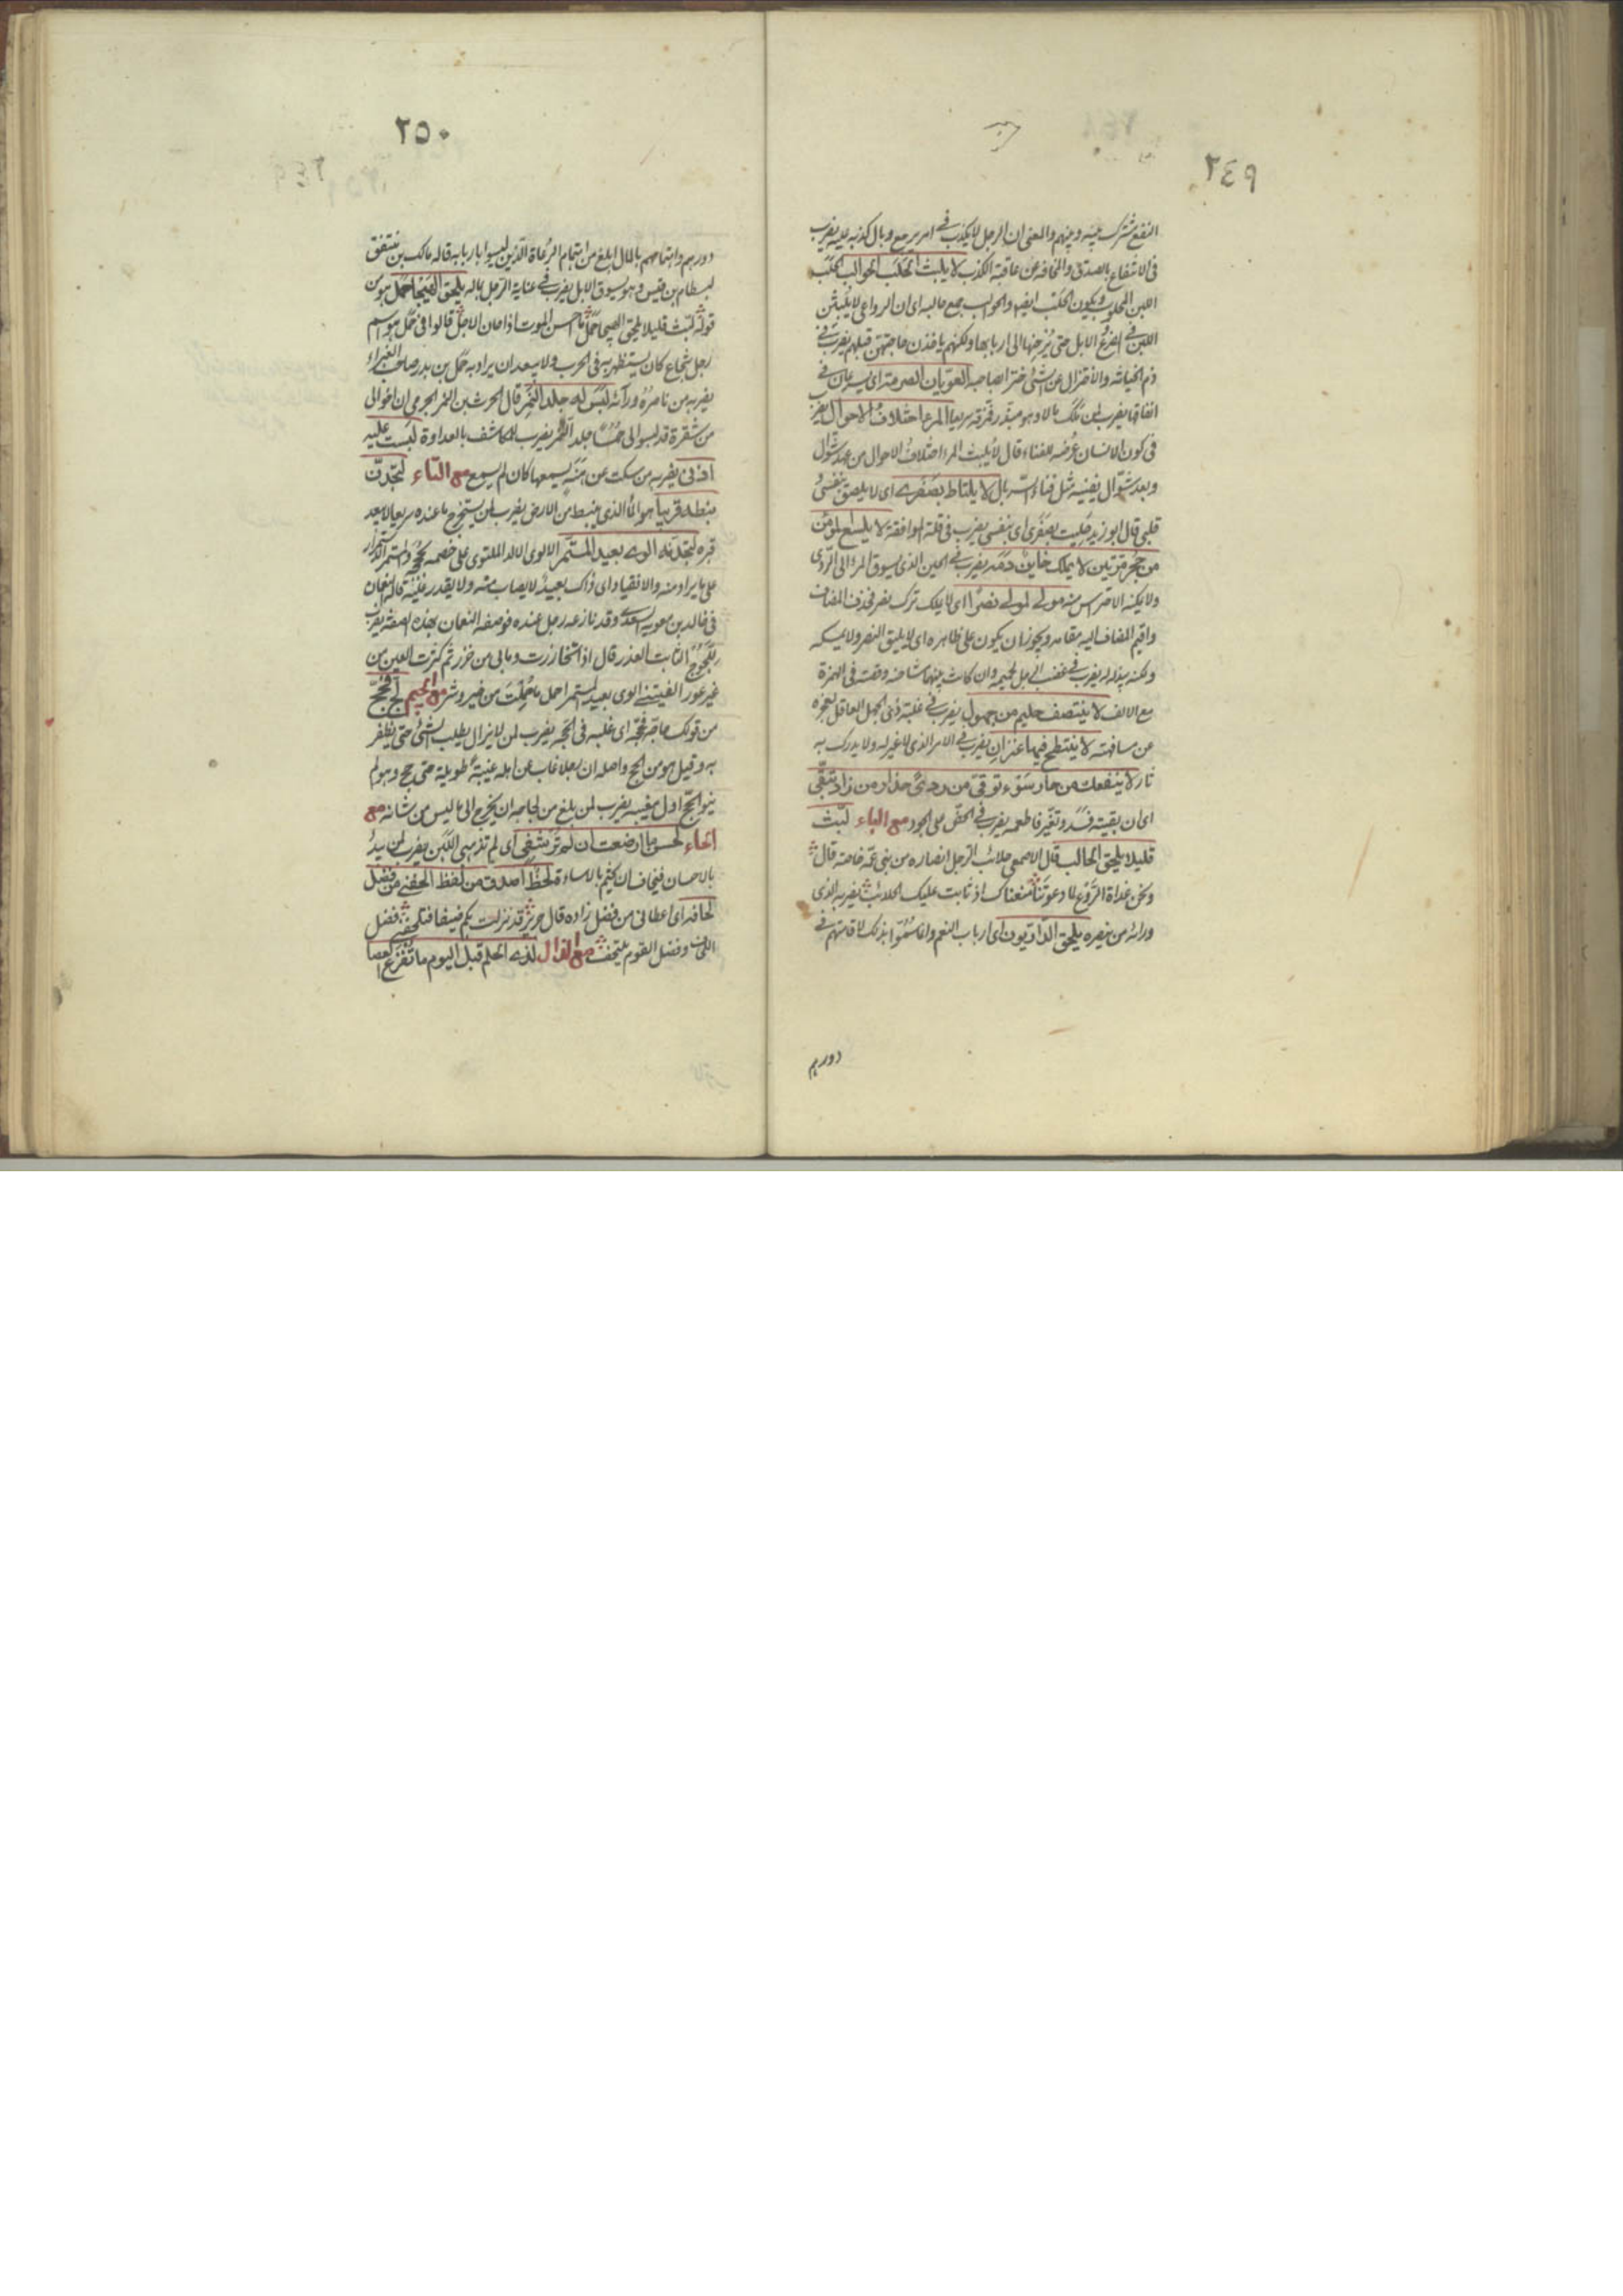 ٢٤٩
النفع مشترك بينه وبينهم والمعنى ان الرجل لا يكذب في امر يرجع وبال كذبه عليه يضرب
في الانتفاع بالصدق والمخافة عن عاقبة الكذب لا يلبث الحلب الحوالب الحلب
اللبن المحلوب ويكون الحلب ايضا والحوالب جمع حالبه اى ان الرواعى لا يلبثن
اللبن في الضرع الابل حتى الى اربابها ولكنهم ياخذن حاجتهن قبلهم يضرب في
ذم الخيانة والاختزال عن الشئ اختزا صاحبه الغويان الصرمة اى يسرعان في
انفاقها يضرب لمن ملك مالا وهو مبذر فمزقه سريعا المرء اختلاف الاحوال يضرب
في كون الانسان عرضه للفناء قال لا يلبث المرء اختلاف الاحوال من عهد شوال
وبعد شوال يفنيه مثل فناء السربال لا يلتاط بصفرى اى لا يلصق بنفسى
قلبى قال ابو زيد بصفرى اى بنفسى يضرب في قلة الموافقة لا يلسع المؤمن
من جحر مرتين لا يملك حاين دمه يضرب في الحين الذى يسوق المرء الى الردى
ولا يمكنه الاحتراس منه مولى لمولى نصرا اى لا يملك ترك نصر فحذف المضاف
واقيم المضاف اليه مقامه ويجوز ان يكون على ظاهره اى لا يليق النصر ولا يمسكه
ولكنه يبذله يضرب في غضب الرجل لحميمه وان كانت بينهما مشاحنه وقصته في الهمزة
مع الالف لا ينتصف حليم من جهول يضرب في غلبة ذى الجهل العاقل لعجزه
عن مسافهته لا ينتطح فيها عنزان يضرب في الامر الذى لا غير له ولا يدرك به
ثار لا ينفعك من جار سوء توقى من ردى حذار من زاد تبقى
اى ان بقيته فسد وتغير فاطعمه يضرب في الحض على الجود مع الباء لبث
قليلا يلحق الحالب قال الاصمعى حلائب الرجل انصاره من بنى عمه خاصة قال
ونحن غداة الروع لما دعوتنا منعناك اذ ثابت عليك الحلائب يضربه الذى
ورائه من ينصره يلحق الداديون اى ارباب النعم وانما سموا بذلك لاقامتهم في
دورهم
٢٥٠
دورهم واهتمامهم بالمال ابلغ من اهتمام الرعاة الذين ليسوا باربابه قاله مالك بن منتفق
لبسطام بن قيس وهو يسوق الابل يضرب في عناية الرجل بماله يلحق الهيجا حمل هو من
قوله لبث قليلا يلحق الهيجا حمل ما احسن الموت اذا حان الاجل قالوا في حمل هو اسم
رجل شجاع كان يستظهر به في الحرب ولا يبعد ان يراد به حمل بن بدر صاحب الغبراء
يضربه من ناصره ورآئه لبس له جلد النمر قال الحرث بن النمر الجرمى ان اخوالى
من شقرة قد لبسوا لى جلد النمر يضرب للمكاشف بالعداوة لبست عليه
اذنى يضربه من سكت عن هنة يسمعها كان لم يسمع مع التاء لتجدن
نبطه قريبا هو الماء الذى ينبط من الارض يضرب لمن يستخرج ما عنده سريعا لا يبعد
قعره لتجدنه الوى بعيد المستمر الالوى الالد الملتوى على خصمه بحججه واستمر الاستمرار
على ما يراد منه والانقياد اى ذاك بعيد لا يصاب منه ولا يقدر عليه قاله النعمان
في خالد بن معوية السعدى وقد نازعه رجل عنده فوصفه النعمان بهذه الصفة يضرب
للجوج الثابت الغدر قال اذا تخازرت وما بى من خزر ثم كسرت العين من
غير عور الفيتنى الوى بعيد المستمر احمل ما حملت من خير وشر مع الجيم لج فحج
من قولك حاجه فحجه اى غلبه في الحجه يضرب لمن لا يزال يطلب الشئ حتى يظفر
به وقيل هو من الحج واصله ان رجلا غاب عن اهله غيبة طويلة حتى حج وهو لم
ينو الحج اول مغيبه يضرب لمن بلغ من لجاجه ان يخرج الى ما ليس من شانه مع
الحاء لحسن ما ارضعت ان لم ترشفى اى لم تذهبى اللبن يضرب لمن يبدأ
بالاحسان فيخاف ان يختم بالاساءة لحظ اصدق من لفظ الحفنى من فضل
لحافه اى اعطانى من فضل زاده قال جرير قد نزلت بكم ضيفا فتلحفنى فضل
اللحاف وفضل القوم يلتحف مع الذال لذى الحلم قبل اليوم ما تقرع العصا